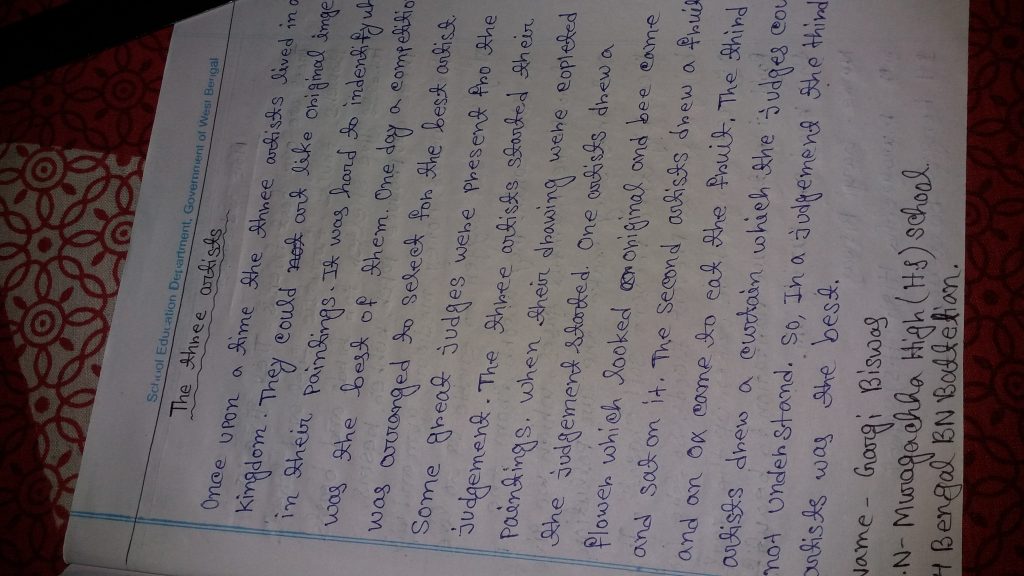 School Education Department, Government of West Bengal
The three artists
Once upon a time the three artists lived in a
kingdom. They could not art like original imge
in their paintings. It was hard to indentify wh
was the best of them. One day a competitio
was arranged to select for the best artist
Some great judges were present fro the
judgement. The three artists started their
paintings. when their drawing were copleted
the judgement started. One artists drew a
flower which looked original and bee came
and sat on it. The second artists drew a fruit
and an ox came to eat the fruit. The third
artists drew a curtain which the judges cou
not understand. So, In a jugement the third
artists was the best.
Name - Gorgi Biswas
.N- Muragachha High (HS) school
4 Bengal BN Battelian.